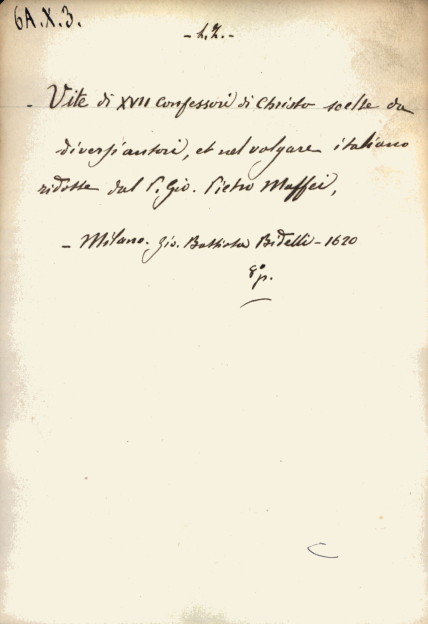 6A.X.3.
- Vite di XVII Confessori di Christo scelte da
diversi autori, et nel volgare italiano
ridotte dal P. Gio. Pietro Maffei,
- Milano. Gio. Battista Bidelli - 1620
8º p.